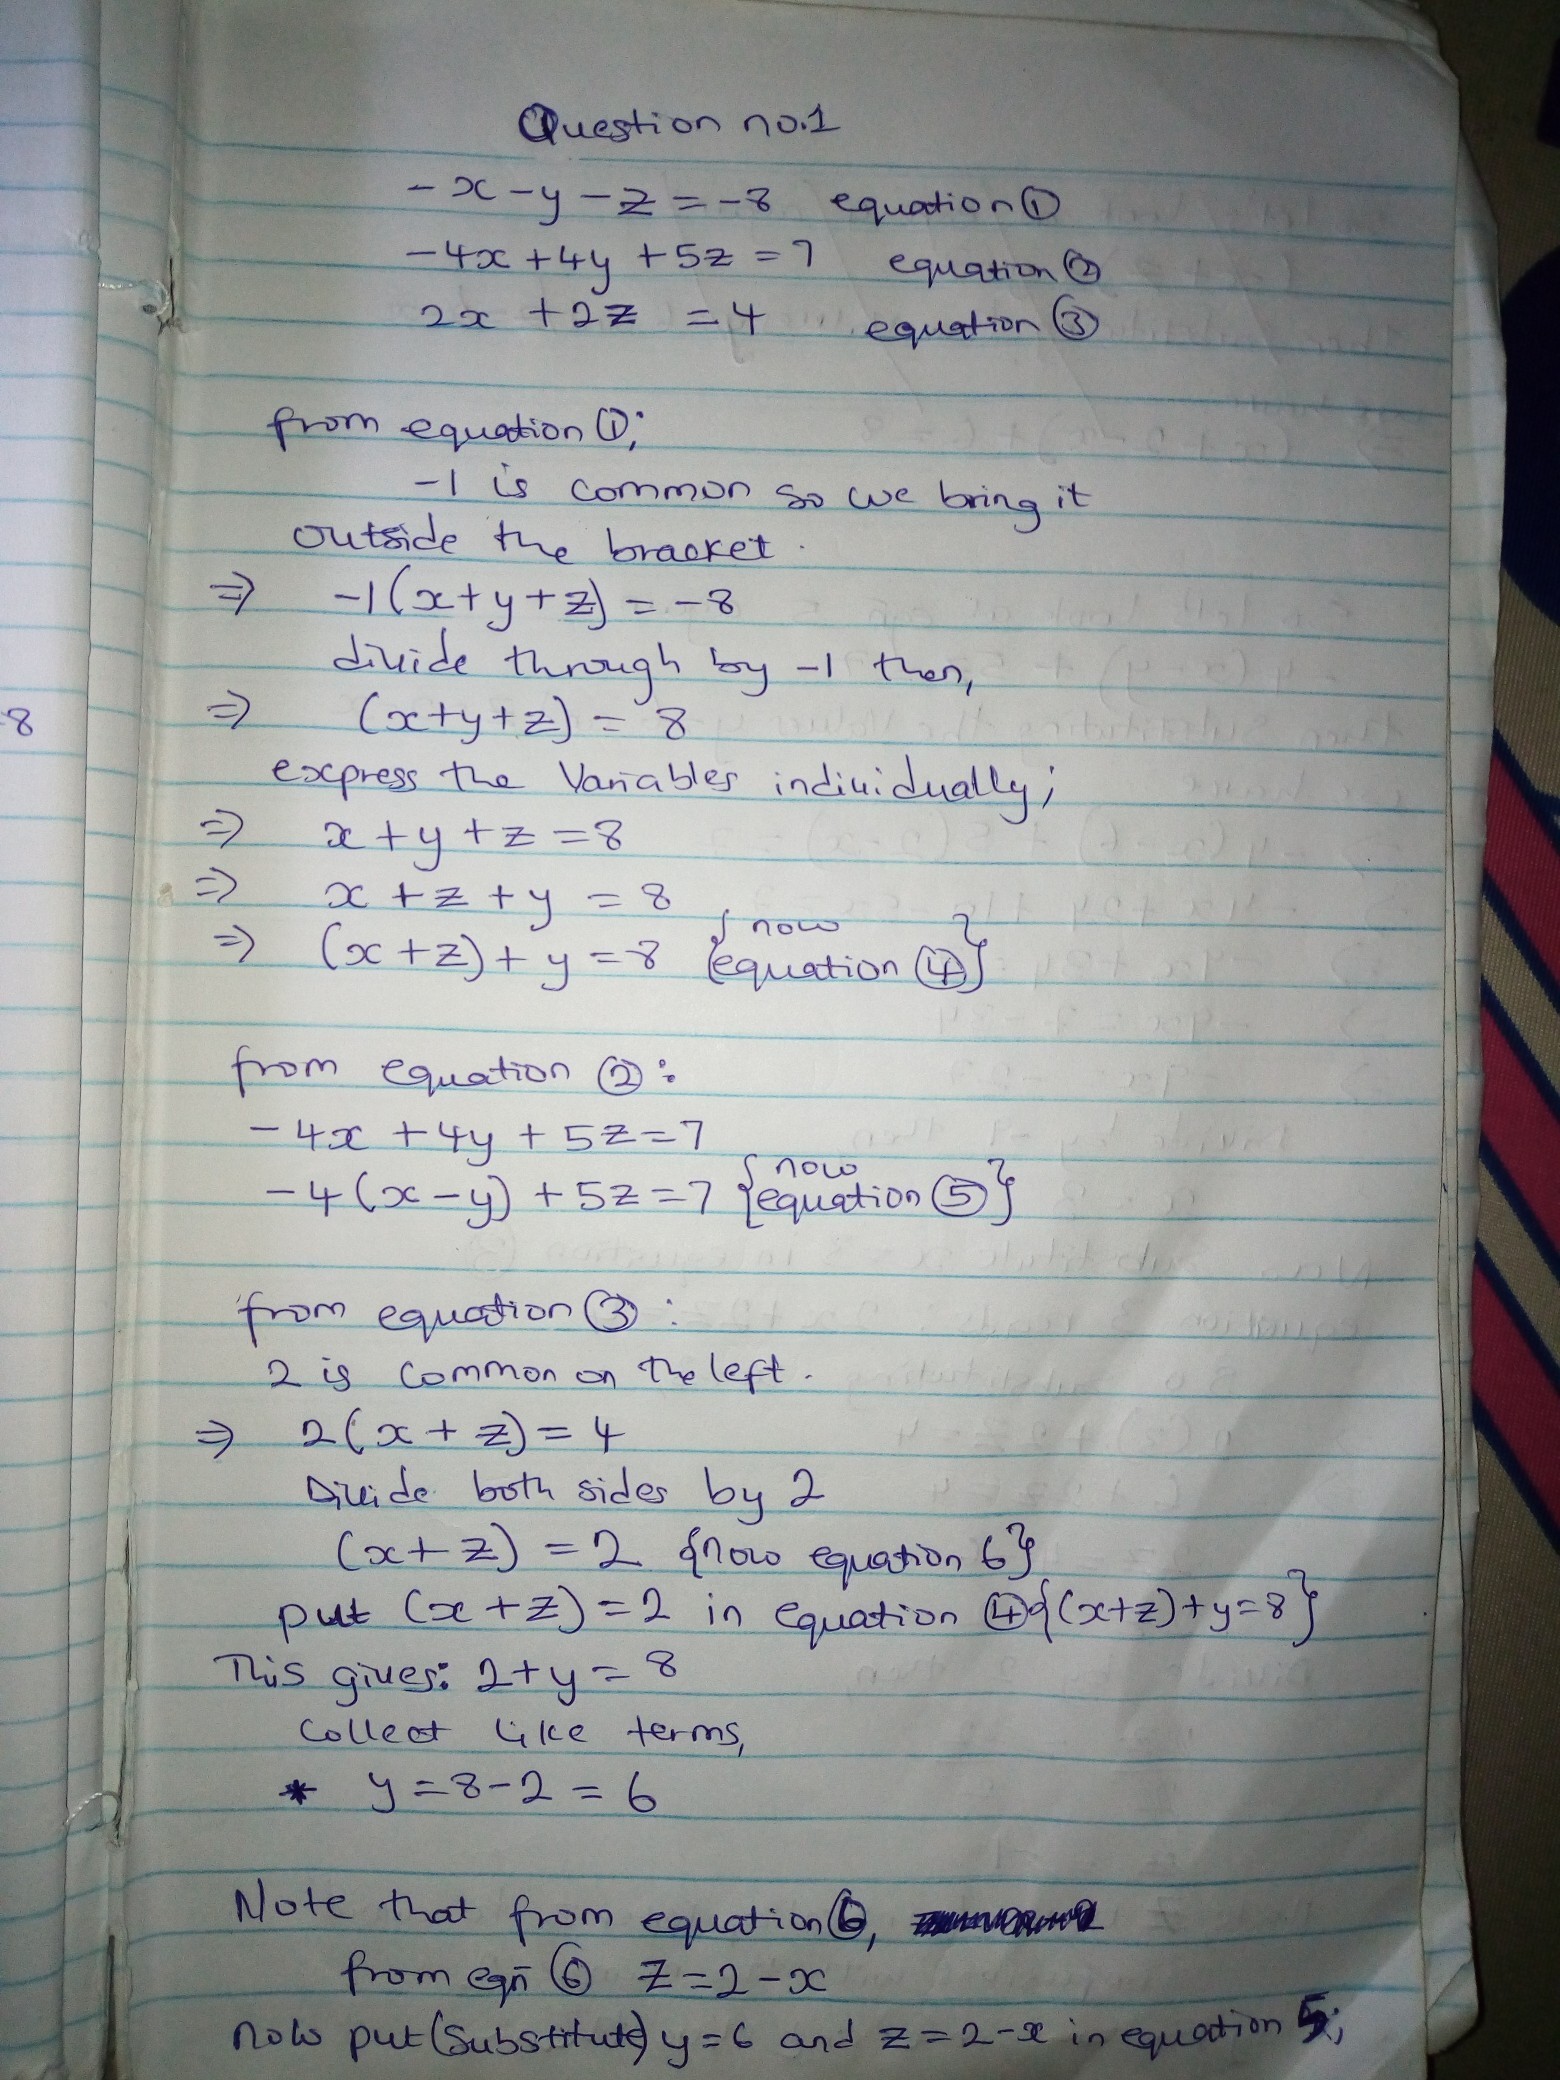 Question no.1
-x-y-z=-8 equation ①
-4x+4y+5z=7 equation ②
2x+2z=4 equation ③
from equation ①;
-1 is common so we bring it
outside the bracket.
⇒ -1(x+y+z)=-8
divide through by -1 then,
⇒ (x+y+z)=8
express the Variables individually;
⇒ x+y+z=8
⇒ x+z+y=8
⇒ (x+z)+y=8 {now equation ④}
from equation ②:
-4x+4y+5z=7
-4(x-y)+5z=7 {now equation ⑤}
from equation ③:
2 is common on the left.
⇒ 2(x+z)=4
Divide both sides by 2
(x+z)=2 {now equation 6}
put (x+z)=2 in equation ④{(x+z)+y=8}
This gives: 2+y=8
Collect like terms,
* y=8-2=6
Note that from equation ⑥,
from eqn ⑥ z=2-x
now put (Substitute) y=6 and z=2-x in equation 5;
-8